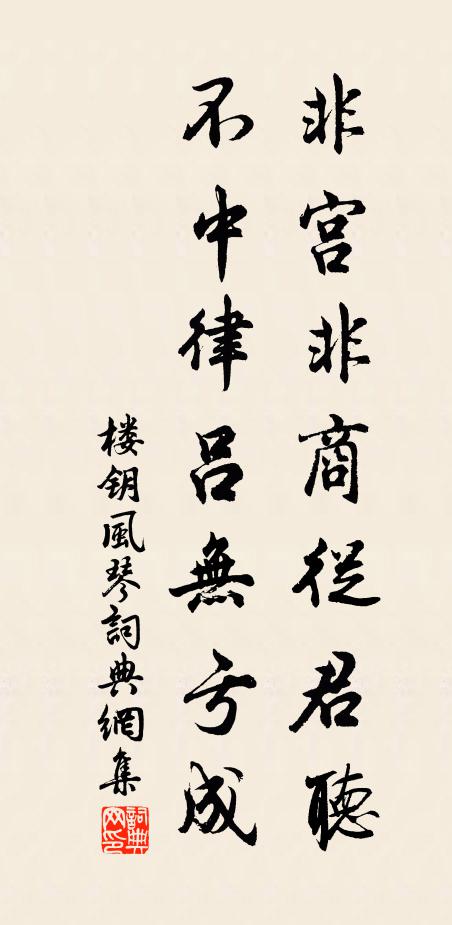 非宫非商從君聽
不中律吕無亏成
楼钥風琴詞典網集
詞典网印